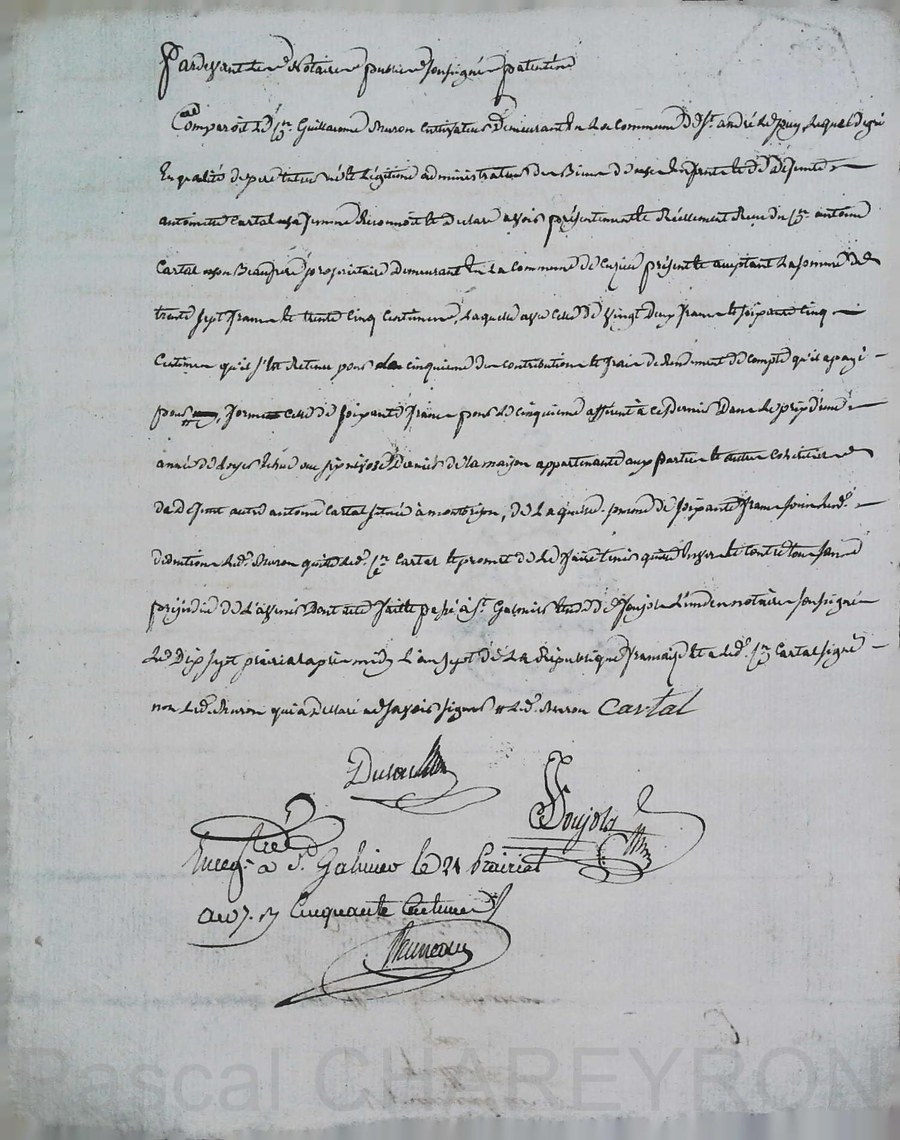 Pardevant le Notaire public soussigné patenté
Comparoit le C.en Guillaume Neuron Cultivateur Demeurant En La Commune De St. andré Le Puy, Lequel de gré
En qualité de pere Et Légitime administrateur des Biens De ses Enfants Et De Défunte
antoinette Cartal sa femme Reconnoit Et Declare avoir présentement Et Réellement Reçu du C.en antoine
Cartal son Beaufrere propriétaire Demeurant En La Commune De Cuzieu présent Et acceptant La somme De
trente sept francs Et trente Cinq Centimes, Laquelle avec Celle De Vingt Deux francs Et soixante Cinq
Centimes qu'il s'Est Retenu pour le cinquieme des contributions Et frais De Rendement De compte qu'il a payé
pour, forme celle De soixante francs pour Le cinquieme afferent à ces derniers Dans Le prix d'une
année De Loyer Echue au six nivose Dernier De la maison appartenante aux parties Et autres Cohéritiers
de defunt autre antoine Cartal située à montbrison, De Laquelle somme De soixante francs
Led. Neuron quitte Led. C.en Cartal Et promet De Le faire tenir quitte Envers Et Contre tous sans
préjudice De L'avenir Dont acte fait Et passé à St. Galmier Etude De Soujols L'un des notaires soussigné
Le Dix sept prairial après midy L'an sept De La République française Et a Led. C.en Cartal signé
non Led. Neuron qui a Déclaré ne savoir signer Led. Neuron Cartal
Soujols
Enreg.tré à St Galmier le 21 Prairial
an 7. R Cinquante Centimes
Pascal CHAREYRON